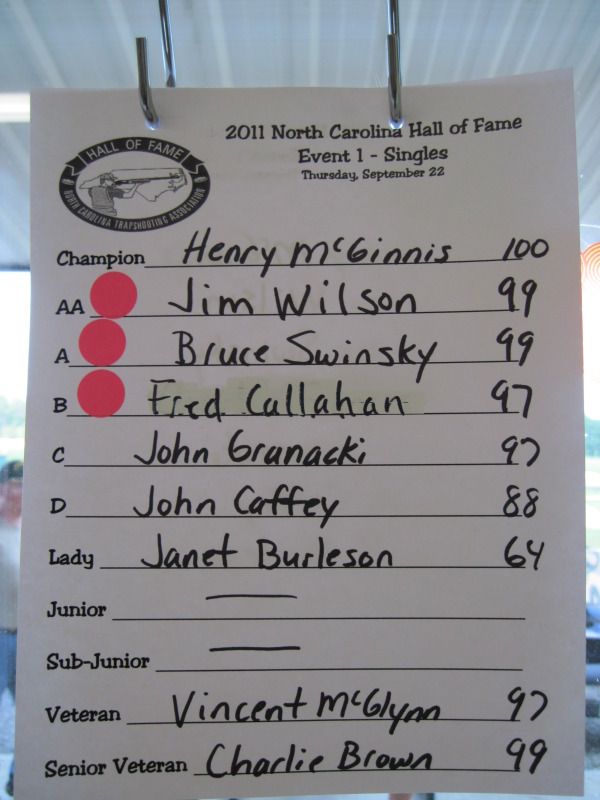 2011 North Carolina Hall of Fame
Event 1 - Singles
Thursday, September 22
HALL OF FAME
NORTH CAROLINA TRAPSHOOTING ASSOCIATION
Champion Henry McGinnis 100
AA Jim Wilson 99
A Bruce Swinsky 99
B Fred Callahan 97
C John Granacki 97
D John Caffey 88
Lady Janet Burleson 64
Junior —
Sub-Junior —
Veteran Vincent McGlynn 97
Senior Veteran Charlie Brown 99